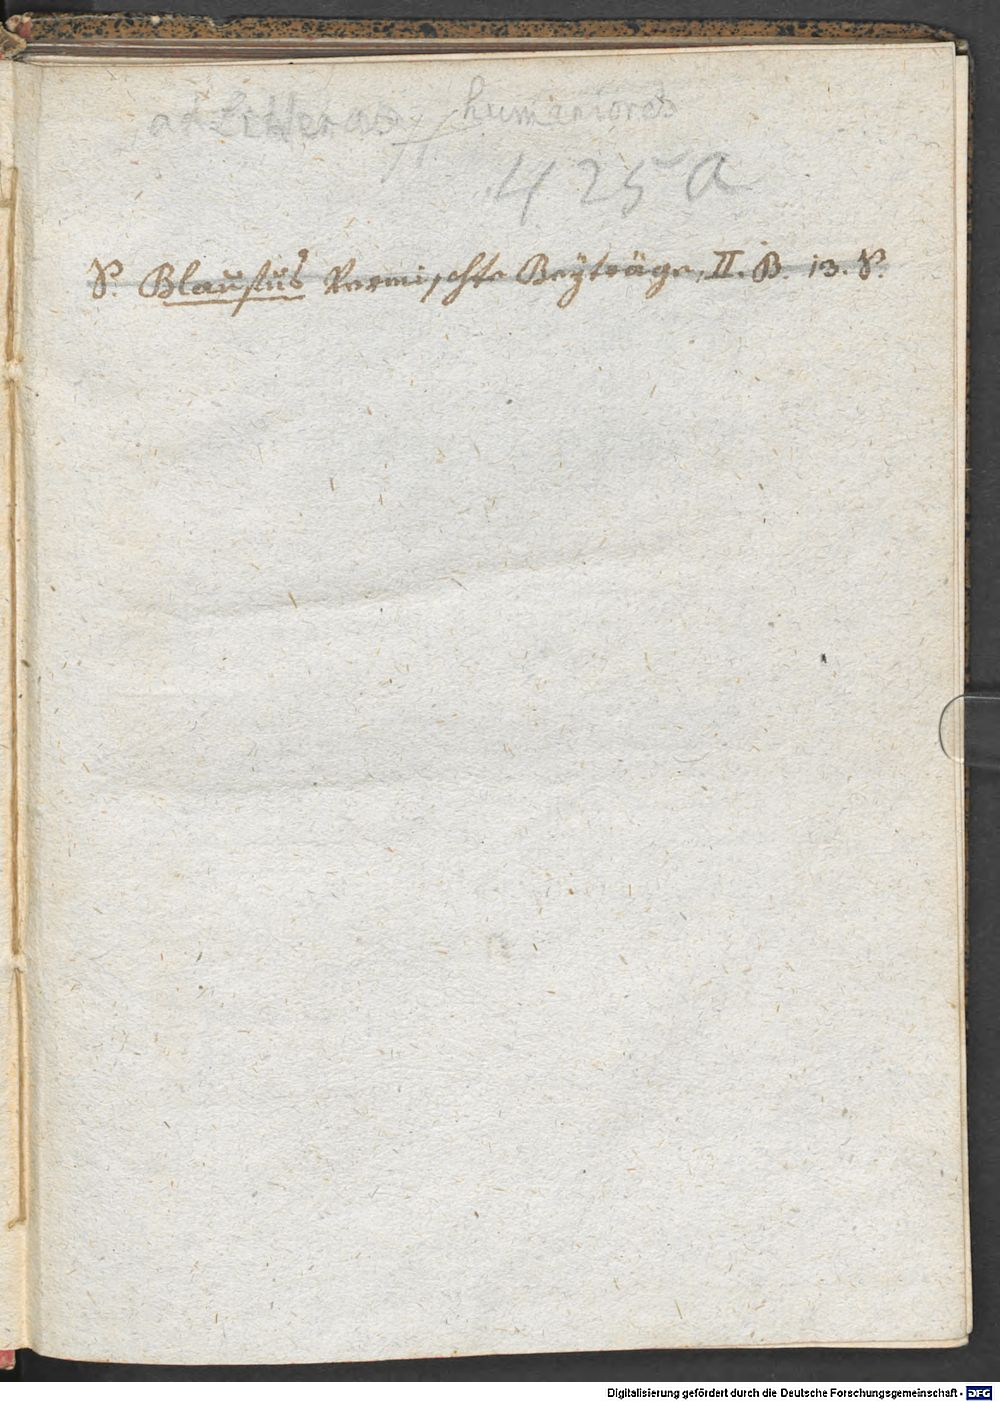 ad Litteras humaniores
425a
S. Blaufus Vermischte Beyträge, II. B. 13. S.
Digitalisierung gefördert durch die Deutsche Forschungsgemeinschaft - DFG